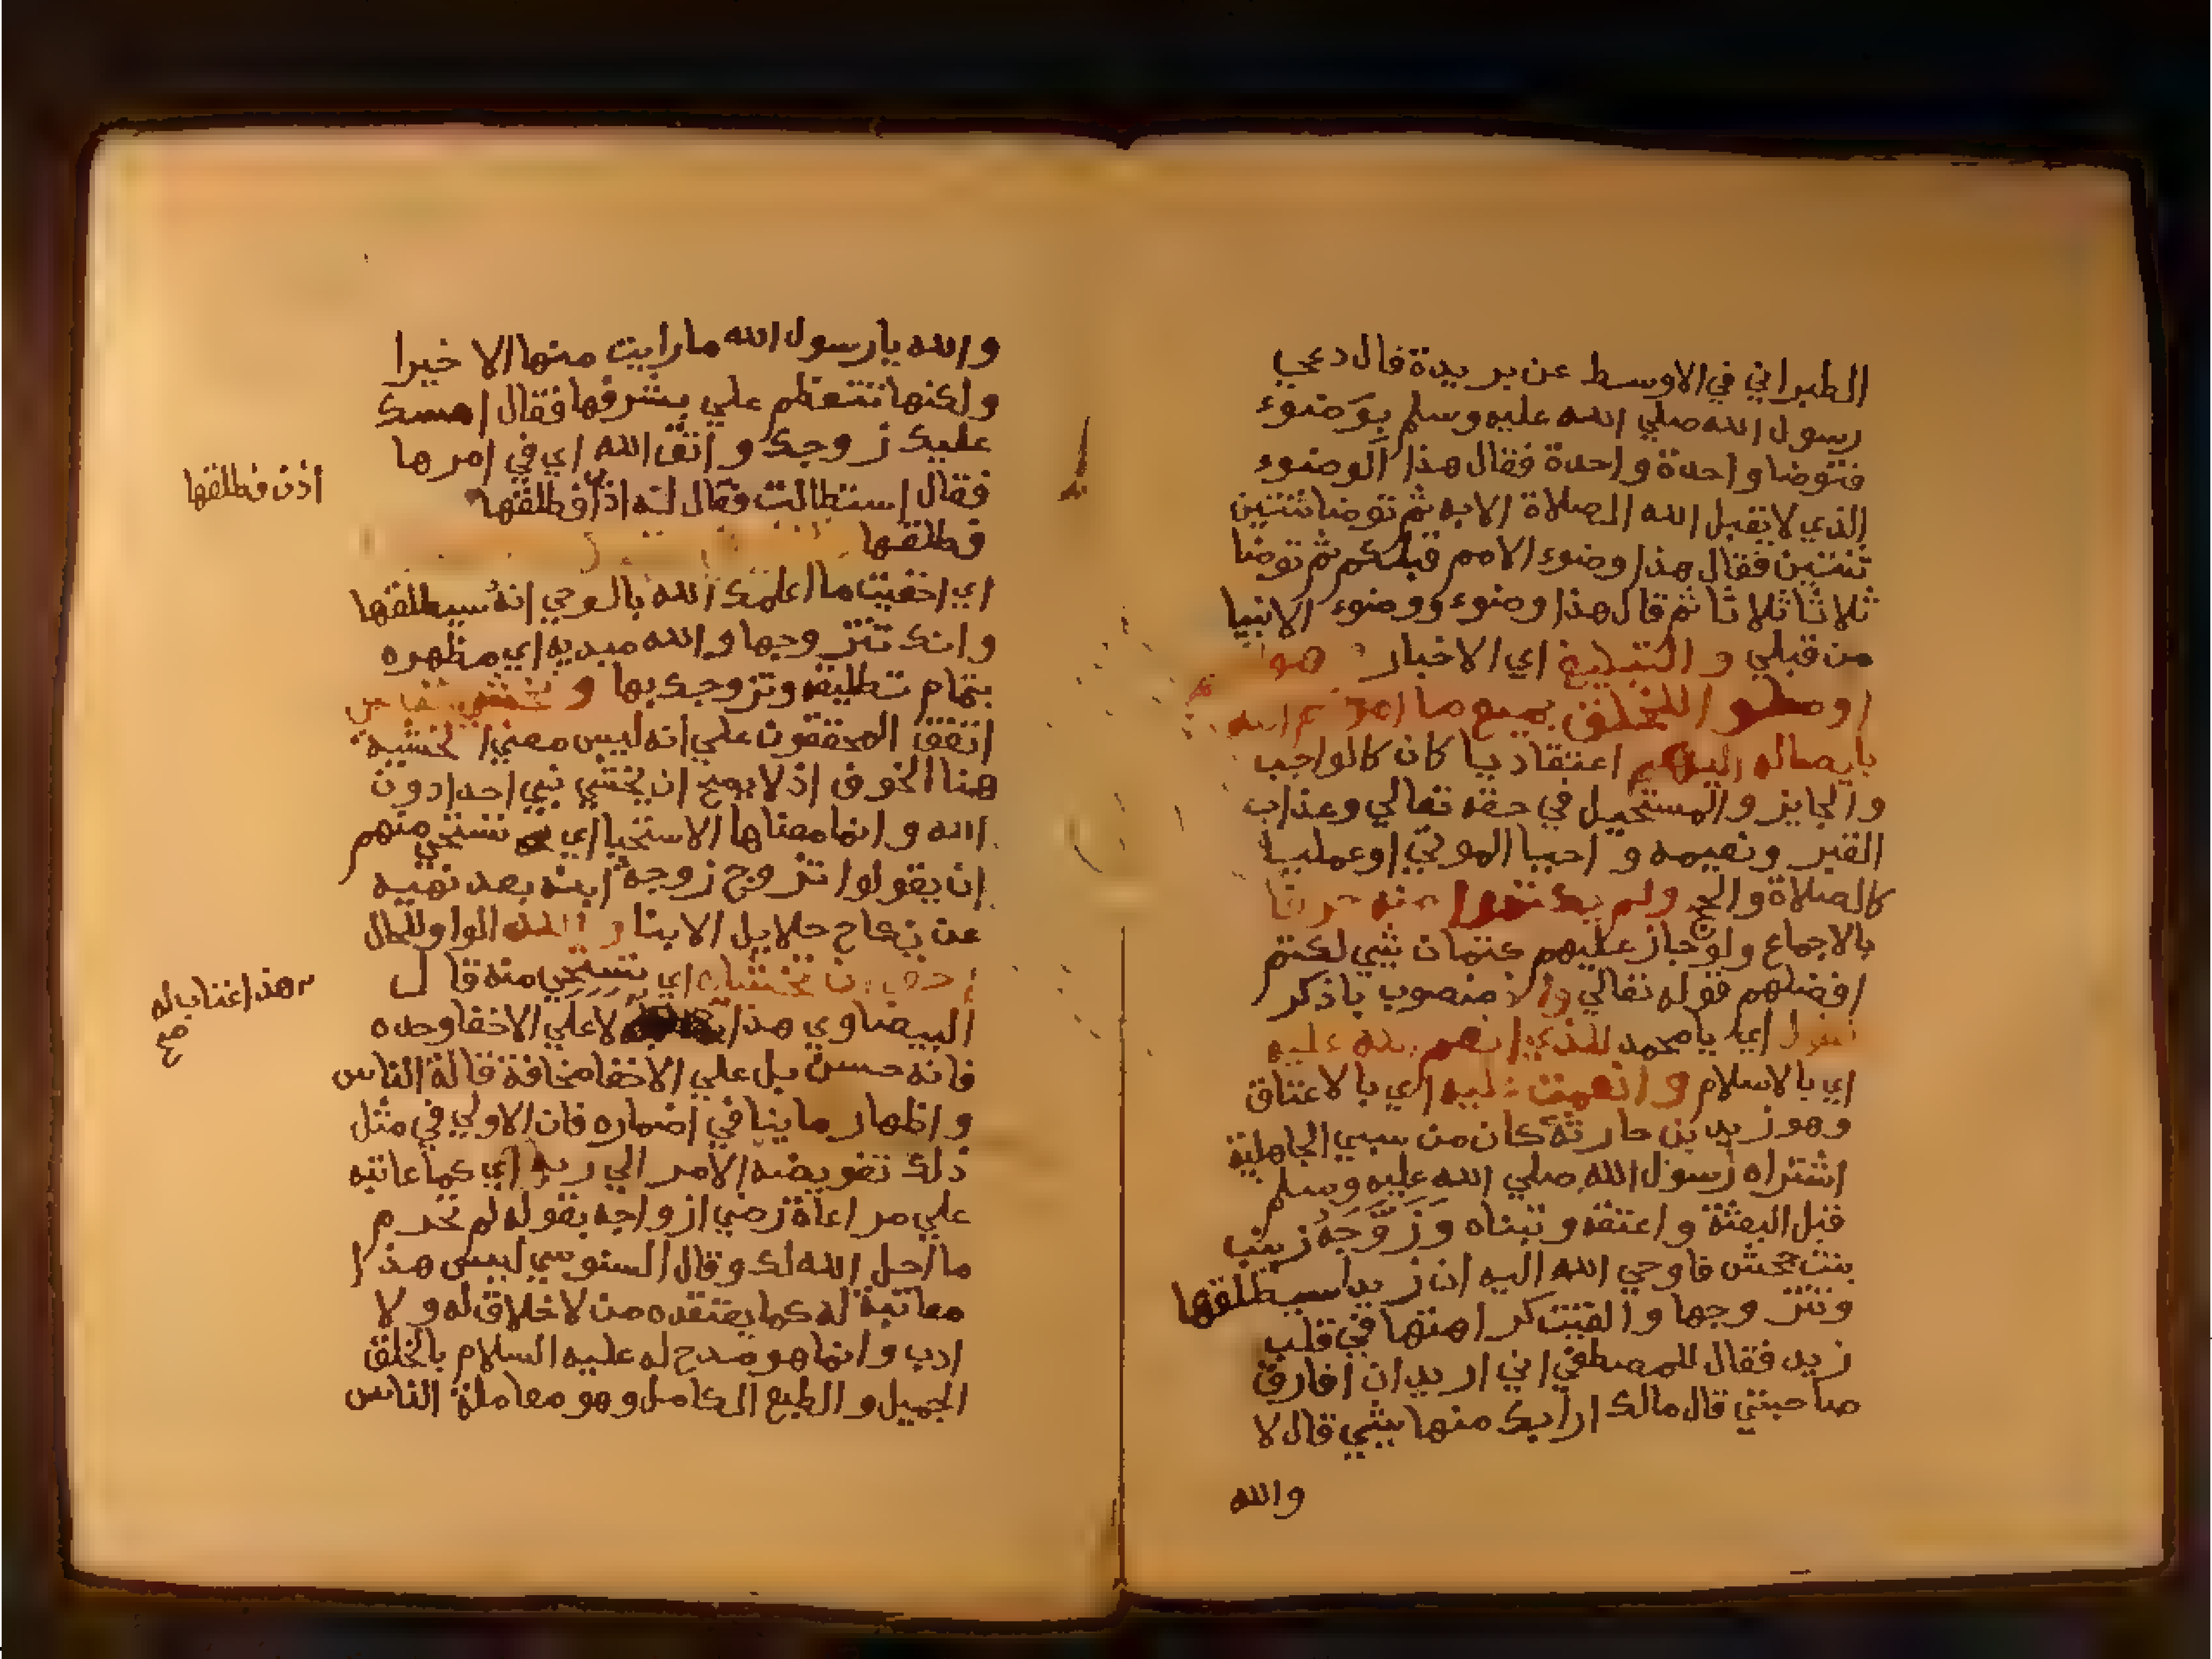 الطبراني في الاوسط عن بريدة قال دعي
رسول الله صلي الله عليه وسلم بوَضوء
فتوضا واحدة واحدة فقال هذا الوضوء
الذي لا تقبل الله الصلاة الا به ثم توضا ثنتين
ثنتين فقال هذا وضوء الامم قبلكم ثم توضا
ثلاثا ثلاثا ثم قال هذا وضوء ووضوء الانبيا
من قبلي و التبليغ اي الاخبار هو
للخلق ما الله
بايصاله اليهم اعتقاديا كان كالواجب
والجايز والمستحيل في حقه تعالي وعذاب
القبر ونعيمه و احيا الموتي او عمليا
كالصلاة والحج ولم يكتموا منه حرفا
بالاجماع ولو جاز عليهم كتمان شي لكتم
افضلهم قوله تعالي واذ منصوب باذكر
تقول اي يا محمد للذي انعم الله عليه
اي بالاسلام وانعمت عليه اي بالاعتاق
وهو زيد بن حارثة كان من سبي الجاهلية
اشتراه رسول الله صلي الله عليه وسلم
قبل البعثة واعتقه وتبناه وَزَوَّجَهُ زينب
بنت جحش فاوحي الله اليه ان زيدا سيطلقها
وتتزوجها والقيت كراهتها في قلب
زيد فقال للمصطفي اني اريد ان افارق
صاحبتي قال مالك ارابك منها شي قال لا
والله
والله يا رسول الله ما رايت منها الا خيرا
ولكنها تتعظم علي بشرفها فقال امسك
عليك زوجك واتق الله اي في امرها
فقال استطالت فقال له اذا فطلقها
اذن فطلقها
فطلقها
اي اخفيت ما اعلمك الله بالوحي انه سيطلقها
وانك تتزوجها والله مبديه اي مظهره
بتمام تطليقه وتزوجك بها و تخشي الناس
اتفق المحققون علي انه ليس معني الخشية
هنا الخوف اذ لا يصح ان يخشي نبي احدا دون
الله وانما معناها الاستحيا اي تستحي منهم
ان يقولوا تزوج زوجة ابنه بعد نهيه
عن نكاح حلايل الابنا والله الواو للحال
احق ان تخشاه اي تستحي منه قال
البيضاوي هذا لا علي الاخفا وحده
هذا عتاب له
صح
فانه حسن بل علي الاخفا مخافة قالة الناس
واظهار ما ينافي اضماره فان الاولي في مثل
ذلك تفويضه الامر الي ربه اي كما عاتبه
علي مراعاة رضي ازواجه بقوله لم تحرم
ما احل الله لك وقال السنوسي ليس هذا
معاتبة له كما يعتقده من لا خلاق له ولا
ادب وانما هو مدح له عليه السلام بالخلق
الجميل والطبع الكامل وهو معاملة الناس